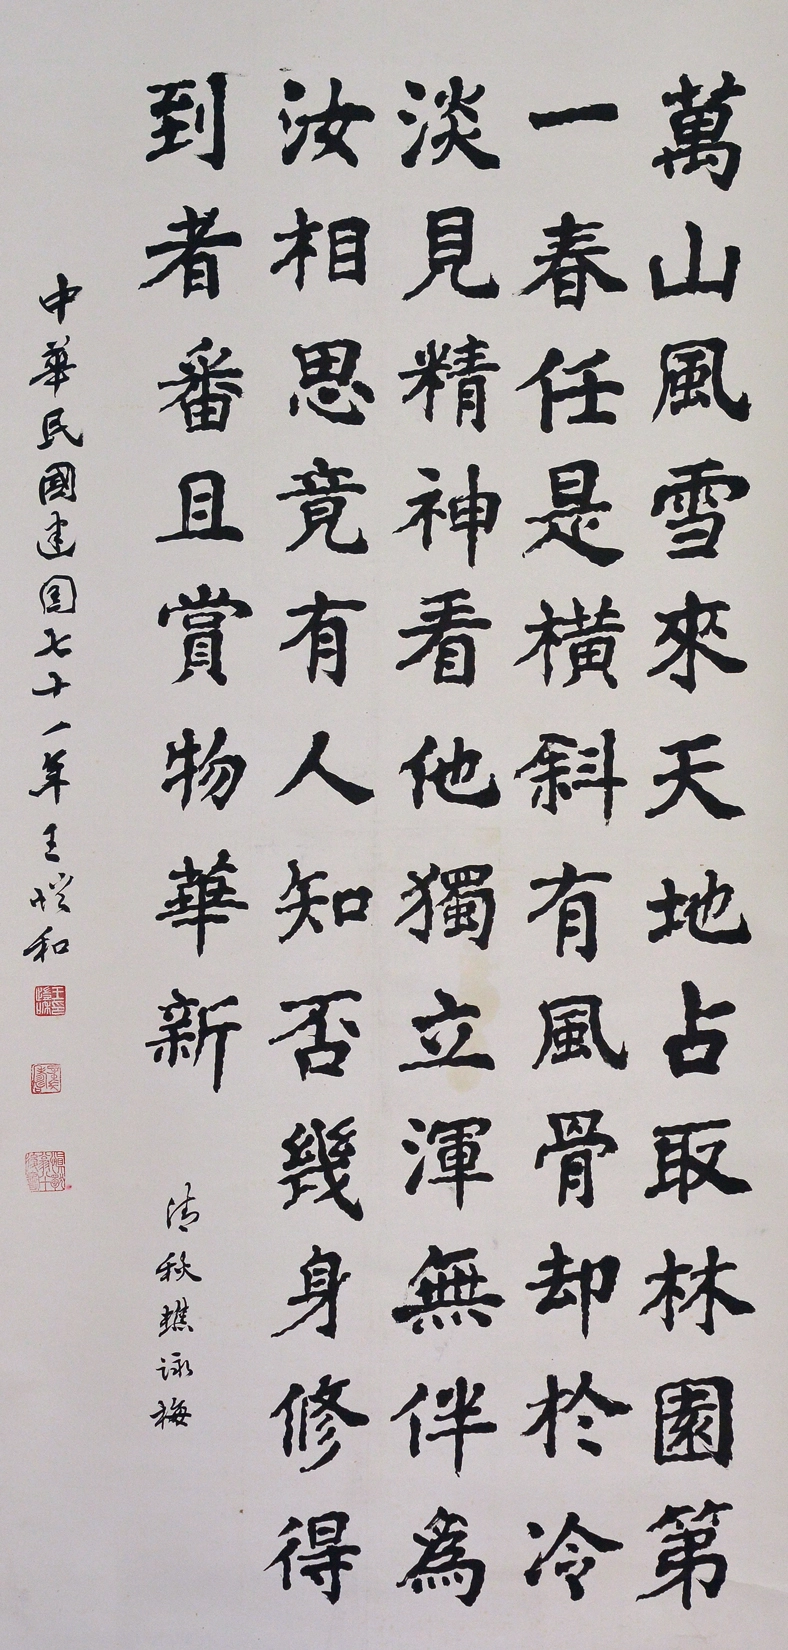 萬山風雪來天地占取林園第
一春任是橫斜有風骨却於冷
淡見精神看他獨立渾無伴為
汝相思竟有人知否幾身修得
到者番且賞物華新
清秋瑧詠梅
中華民國建国七十一年王愷和